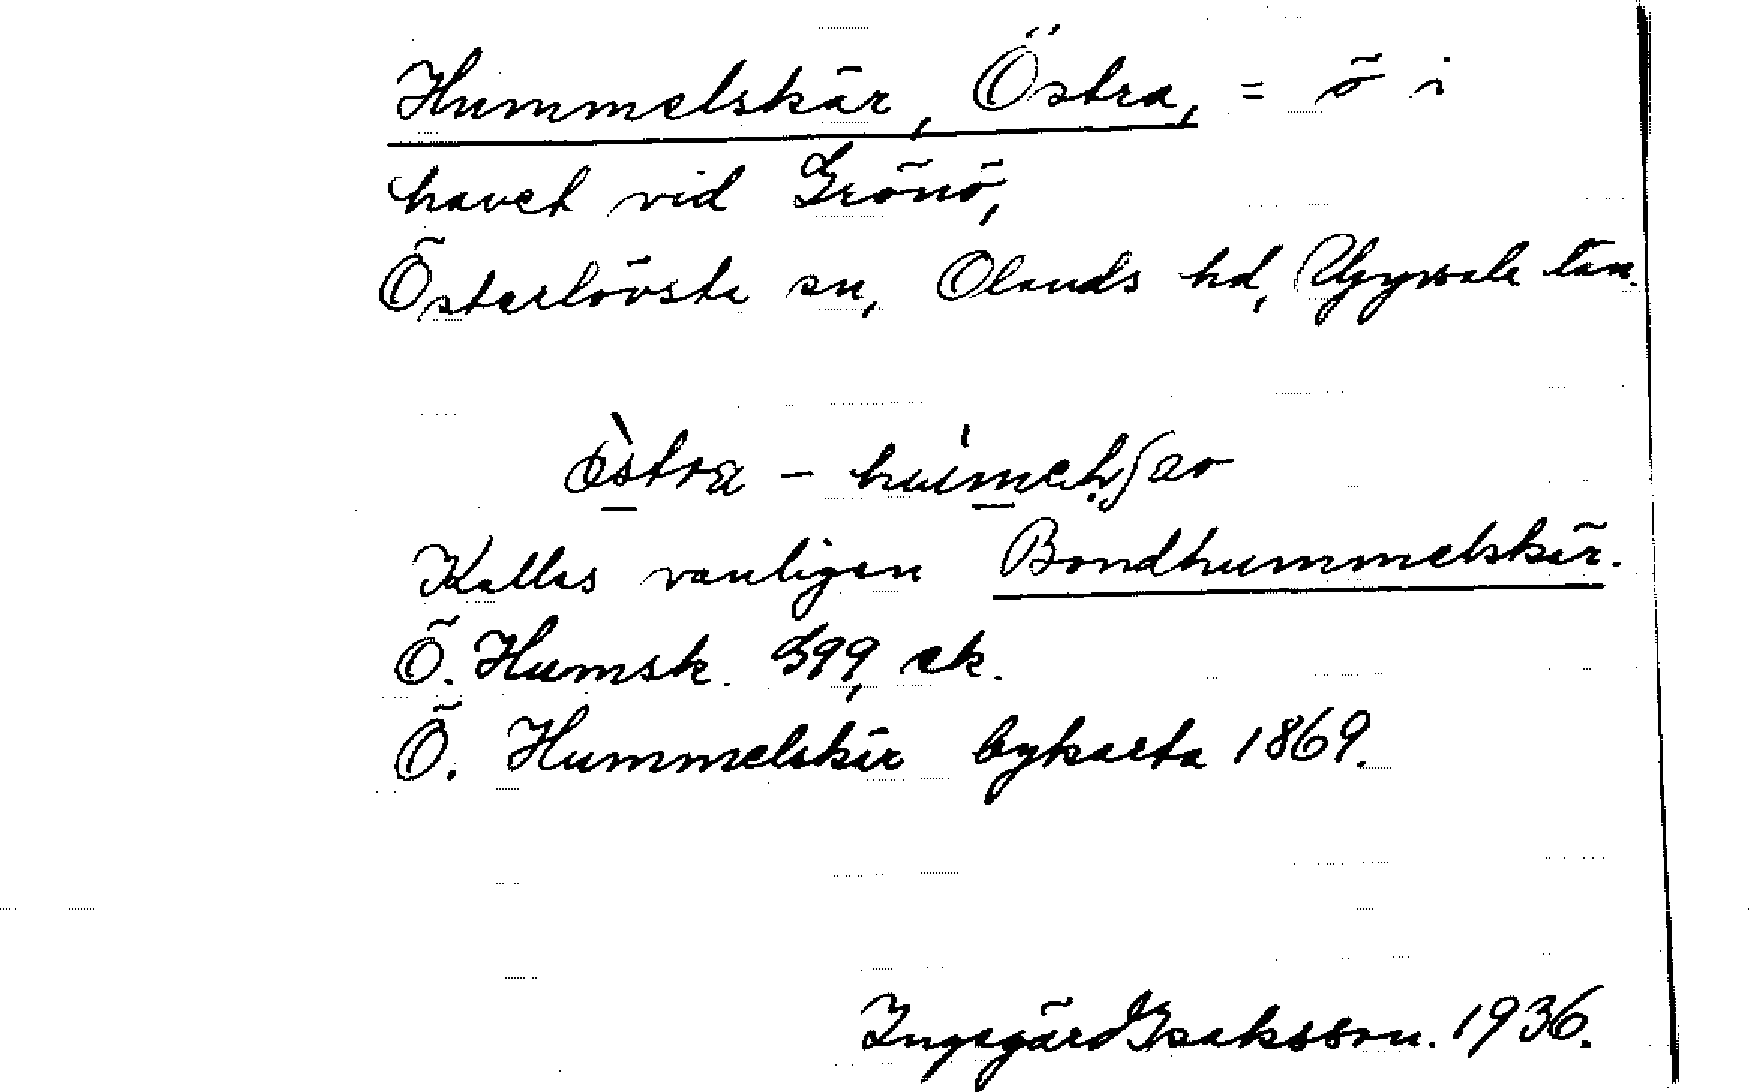 Hummelskär, Östra, = ö i
havet vid Grönö,
Österlövsta sn, Olands hd, Uppsala län.
östra -
Kallas vanligen Bondhummelskär.
Ö. Humsk. G99, ek.
Ö. Hummelskär bykarta 1869.
Ingegärd Isaksson. 1936.